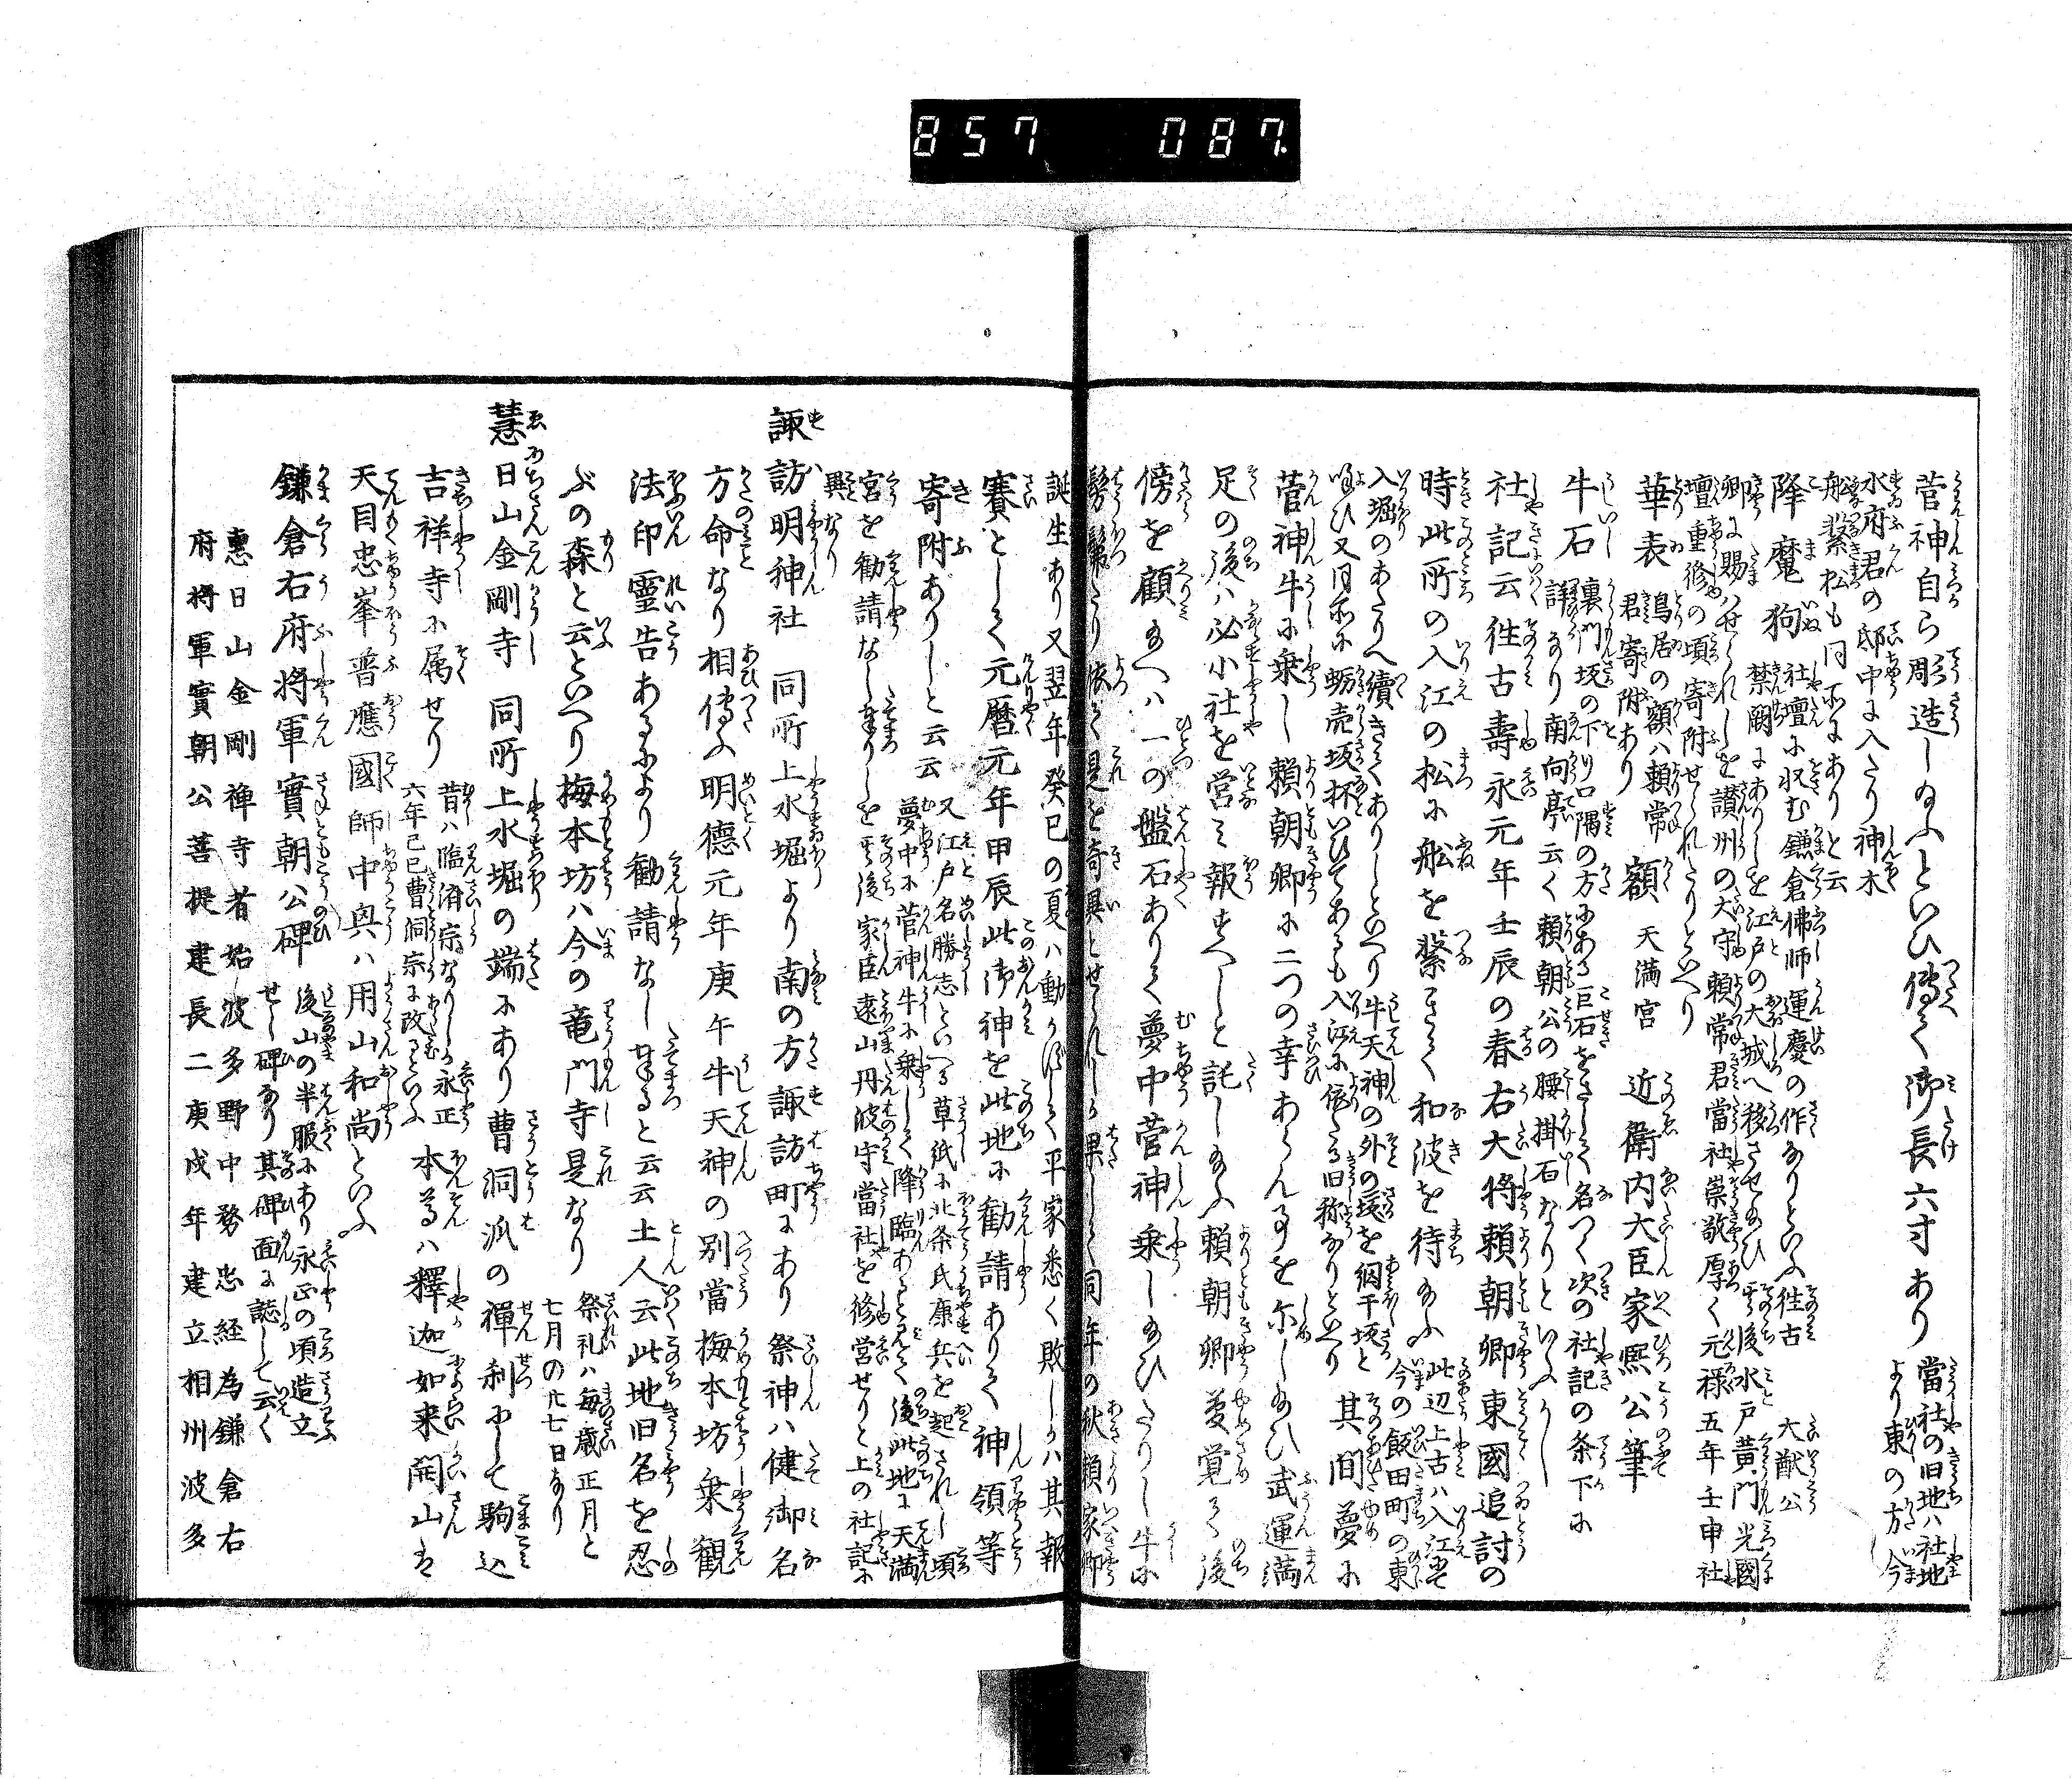 857 087.
菅神自ら彫造し給ふといひ傳へて御長六寸あり 當社の旧地ハ社地
より東の方今
水府君の邸中に入たり神木
船繋松も同所にありと云
降魔狗 社壇に収む鎌倉佛師運慶の作なりといふ往古 大猷公
禁闕にありしを江戸の大城へ移させ給ひ其後水戸黄門光國
卿に賜ハせられしを讃州の大守頼常君當社崇敬厚く元禄五年壬申社
壇重修の頃寄附せられたりといへり
華表 鳥居の額ハ頼常
君寄附あり 額 天満宮 近衛内大臣家熙公筆
牛石 裏門坂の下り口隅の方にある巨石をさして名つく次の社記の条下に
詳なり南向亭云く頼朝公の腰掛石なりといふへし
社記云往古壽永元年壬辰の春右大将頼朝卿東國追討の
時此所の入江の松に舩を繋きて和波を待給ふ 此辺上古ハ入江にて
今の飯田町の東
入堀のあたりへ續きてありしといへり牛天神の外の坂を網干坂と
唱ひ又同所に蛎売坂抔いひてあるも入江に依たる旧称なりといへり 其間夢に
菅神牛に乗し頼朝卿に二つの幸あらん事を示し給ひ武運満
足の後ハ必小社を営て報すへしと託し給ふ頼朝卿夢覚て後
傍を顧給へハ一の盤石ありて夢中菅神乗し給ひたりし牛に
髣髴たり依て是を奇異とせられしか果して同年の秋頼家卿
誕生あり又翌年癸巳の夏ハ動かずして平家悉く敗しかハ其報
賽として元暦元年甲辰此御神を此地に勧請ありて神領等
寄附ありしと云云 又江戸名勝志といへる草紙に北条氏康兵を起されし頃
夢中に菅神牛に乗して降臨あるとみて後此地に天満
宮を勧請なし奉りしを其後家臣遠山丹波守當社を修営せりと上の社記に
異なり
諏訪明神社 同所上水堀より南の方諏訪町にあり祭神ハ健御名
方命なり相傳ふ明徳元年庚午牛天神の別當梅本坊乗観
法印霊告あるにより勧請なし奉ると云云土人云此地旧名を忍
ぶの森と云といへり梅本坊ハ今の竜門寺是なり 祭礼ハ毎歳正月と
七月の廿七日なり
慧日山金剛寺 同所上水堀の端にあり曹洞派の禅刹にして駒込
吉祥寺に属せり 昔ハ臨済宗なりしか永正
六年己巳曹洞宗に改むといふ 本尊ハ釋迦如来開山は
天目忠峯普應國師中興ハ用山和尚といふ
鎌倉右府将軍實朝公碑 後山の半服にあり永正の頃造立
せし碑なり其碑面に誌して云く
惠日山金剛禅寺者始波多野中務忠経為鎌倉右
府将軍實朝公菩提建長二庚戌年建立相州波多